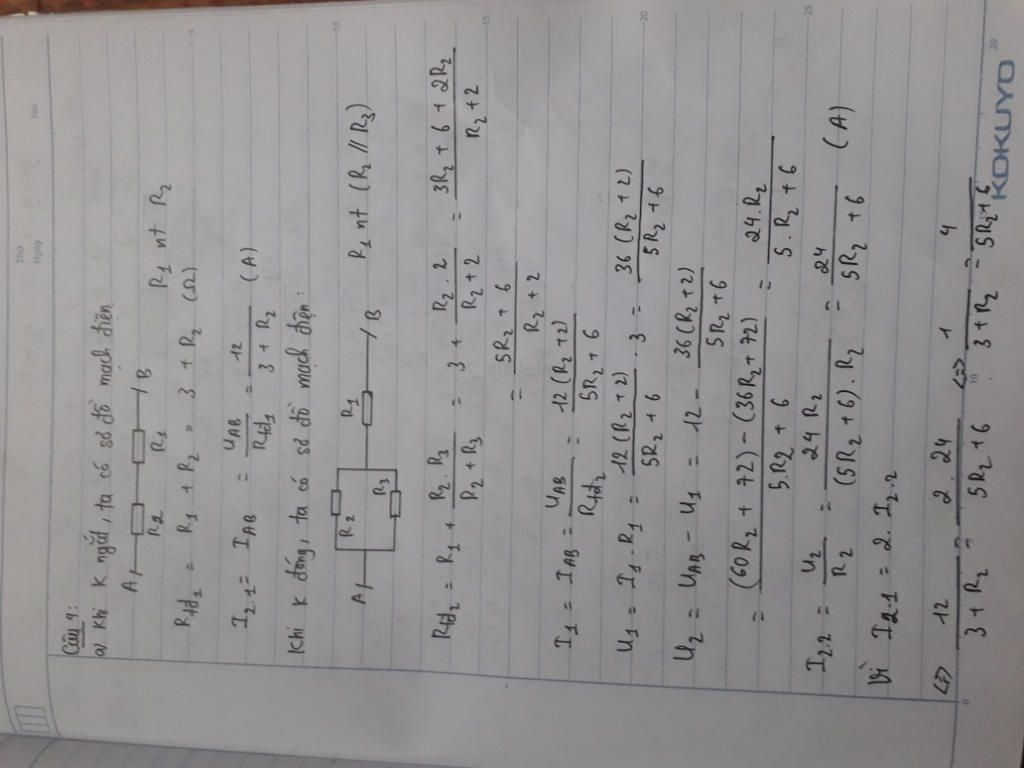 No.
Ngày
Câu 4:
a). Khi K ngắt, ta có sơ đồ mạch điện
A R2 R1 B R1 nt R2
Rtđ1 = R1 + R2 = 3 + R2 (Ω)
I2-1 = IAB = UAB / Rtđ1 = 12 / 3 + R2 (A)
Khi K đóng, ta có sơ đồ mạch điện:
A R2 R3 R1 B R1 nt (R2 // R3)
Rtđ2 = R1 + R2 . R3 / R2 + R3 = 3 + R2 . 2 / R2 + 2 = 3R2 + 6 + 2R2 / R2 + 2
= 5R2 + 6 / R2 + 2
I1 = IAB = UAB / Rtđ2 = 12(R2 + 2) / 5R2 + 6
U1 = I1 . R1 = 12(R2 + 2) / 5R2 + 6 . 3 = 36(R2 + 2) / 5R2 + 6
U2 = UAB - U1 = 12 - 36(R2 + 2) / 5R2 + 6
= (60R2 + 72) - (36R2 + 72) / 5.R2 + 6 = 24.R2 / 5.R2 + 6
I2.2 = U2 / R2 = 24R2 / (5R2 + 6).R2 = 24 / 5R2 + 6 (A)
Vì I2.1 = 2. I2.2
<=> 12 / 3 + R2 = 2 . 24 / 5R2 + 6 <=> 1 / 3 + R2 = 4 / 5R2 + 6
KOKUYO